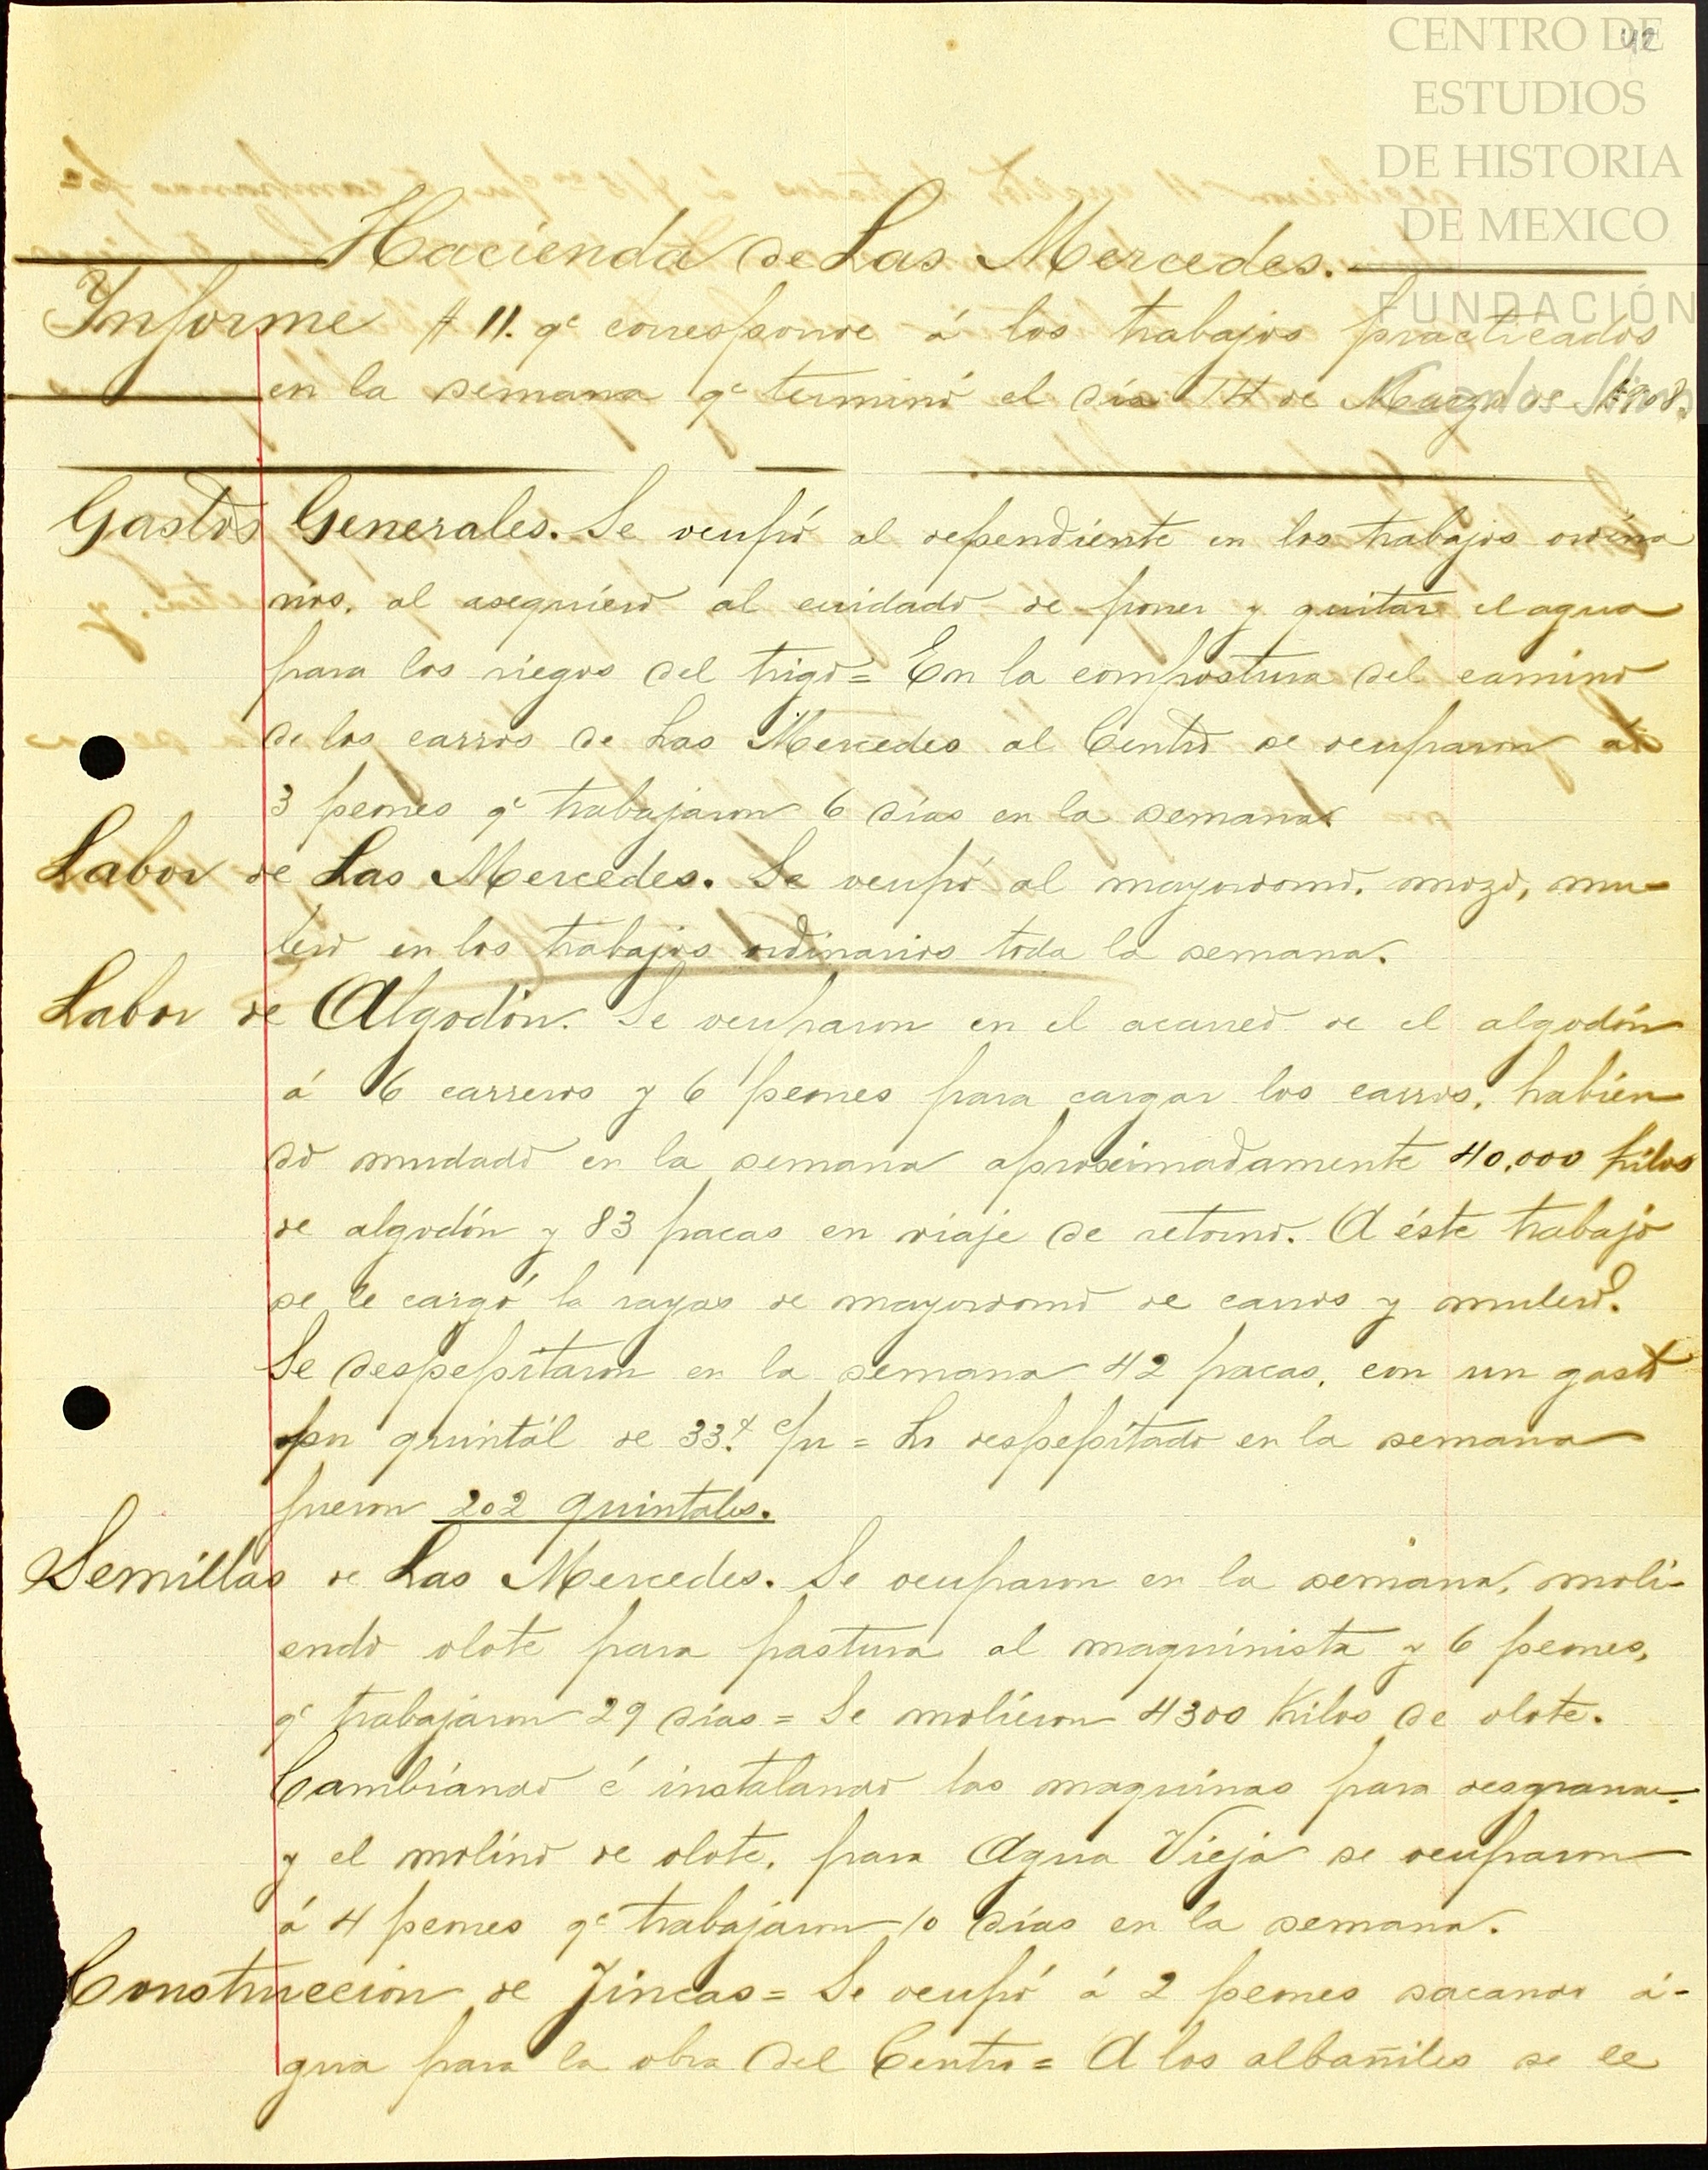 42
CENTRO DE
ESTUDIOS
DE HISTORIA
DE MEXICO
FUNDACIÓN
Hacienda de Las Mercedes.
Informe # 11. qe corresponde á los trabajos practicados
en la semana qe terminó el día 14 de Marzo de 1908.
Gastos Generales. Se ocupó al dependiente en los trabajos ordina
rios, al asequiero al cuidado de poner y quitar el agua
para los riegos del trigo = En la compostura del camino
de los carros de Las Mercedes al Centro se ocuparon á
3 peones qe trabajaron 6 días en la semana
Labor de Las Mercedes. Se ocupó al mayordomo, mozo, mu-
lero en los trabajos ordinarios toda la semana.
Labor de Algodón. Se ocuparon en el acarreo de el algodón
á 6 carreros y 6 peones para cargar los carros, habien
do mudado en la semana aproximadamente 40,000 kilos
de algodón y 83 pacas en viaje de retorno. A éste trabajo
se le cargó la rayas de mayordomo de carros y mulero.
Se despepitaron en la semana 42 pacas, con un gasto
por quintál de 33¢ c/u = Lo despepitado en la semana
fueron 202 quintales.
Semillas de Las Mercedes. Se ocuparon en la semana, moli-
endo olote para pastura al maquinista y 6 peones,
qe trabajaron 29 días = Se molieron 4300 Kilos de olote.
Cambiando é instalando las maquinas para desgranar
y el molino de olote, para Agua Vieja se ocuparon
á 4 peones qe trabajaron 10 días en la semana.
Construccion de Fincas = Se ocupó á 2 peones sacando á-
gua para la obra del Centro = A los albañiles se le